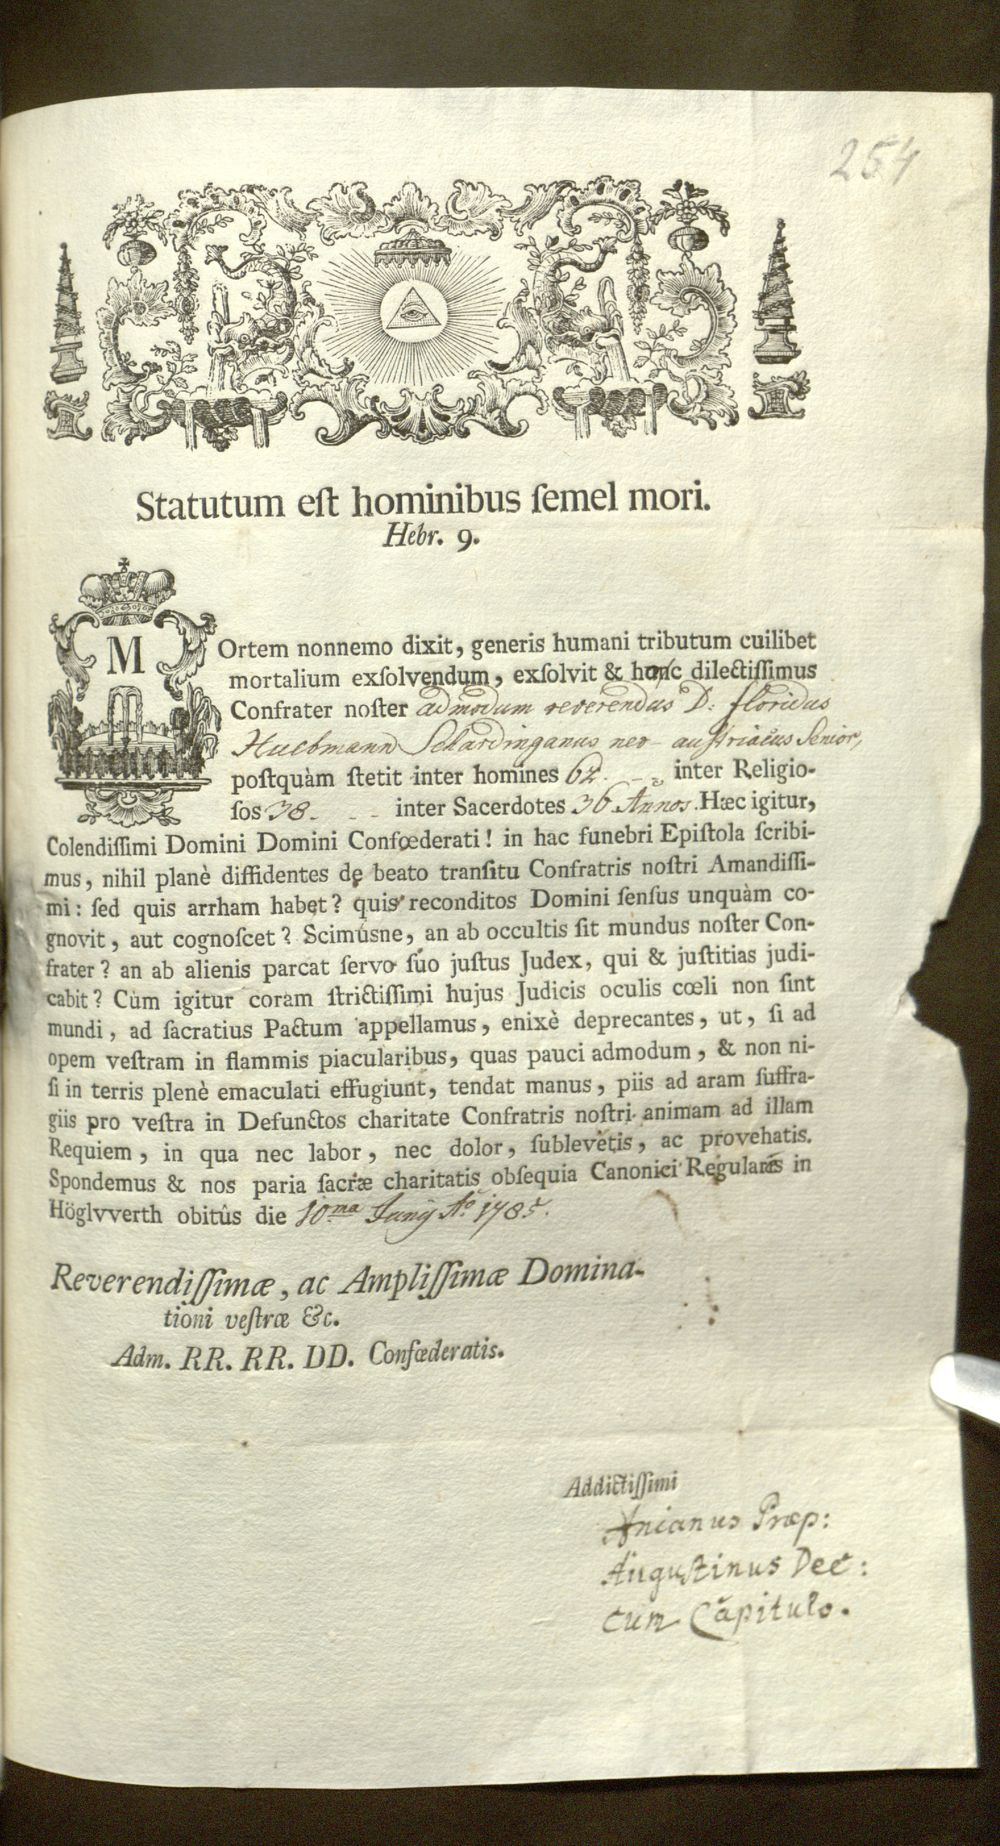 254
Statutum eſt hominibus ſemel mori.
Hebr. 9.
MOrtem nonnemo dixit, generis humani tributum cuilibet
mortalium exſolvendum, exſolvit & hoc dilectiſſimus
Confrater noſter admodum reverendus D: floridus
Huebmann Schardinganus neo-austriacus Senior,
poſtquàm ſtetit inter homines 62. inter Religio-
ſos 38. - - inter Sacerdotes 36 Annos. Hæc igitur,
Colendiſſimi Domini Domini Confœderati! in hac funebri Epiſtola ſcribi-
mus, nihil planè diffidentes de beato tranſitu Confratris noſtri Amandiſſi-
mi: ſed quis arrham habet? quis reconditos Domini ſenſus unquàm co-
gnovit, aut cognoſcet? Scimúsne, an ab occultis ſit mundus noſter Con-
frater? an ab alienis parcat ſervo ſuo juſtus Judex, qui & juſtitias judi-
cabit? Cùm igitur coram ſtrictiſſimi hujus Judicis oculis cœli non ſint
mundi, ad ſacratius Pactum appellamus, enixè deprecantes, ut, ſi ad
opem veſtram in flammis piacularibus, quas pauci admodum, & non ni-
ſi in terris plenè emaculati effugiunt, tendat manus, piis ad aram ſuffra-
giis pro veſtra in Defunctos charitate Confratris noſtri animam ad illam
Requiem, in qua nec labor, nec dolor, ſublevetis, ac provehatis.
Spondemus & nos paria ſacræ charitatis obſequia Canonici Regulares in
Höglvverth obitûs die 10ma Junij Ao 1785.
Reverendiſſimæ, ac Ampliſſimæ Domina-
tioni veſtræ &c.
Adm. RR. RR. DD. Confœderatis.
Addictiſſimi
Anianus Præp:
Augustinus Dec:
cum Capitulo.